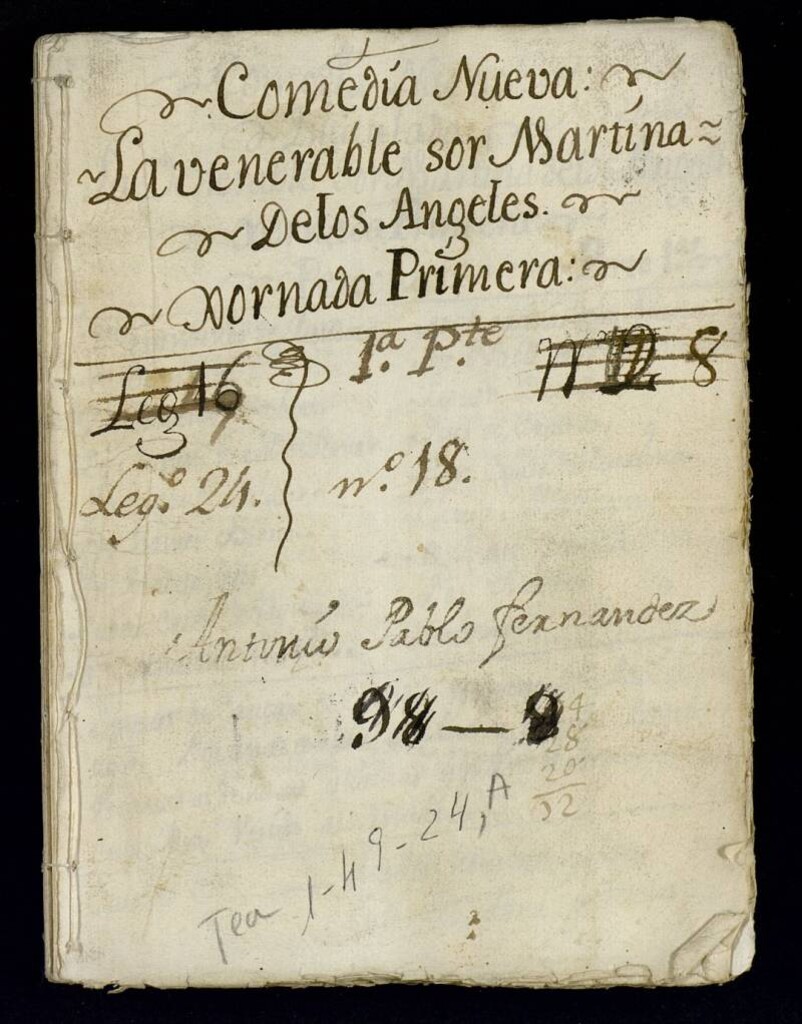 Comedia Nueva:
La venerable sor Martina
Delos Angeles.
Jornada Primera:
1.ª P.te
Leg 16
8
Leg.º 24. n.º 18.
Antonio Pablo Fernandez
98 — 9
28
20
32
Tea 1-49-24, A